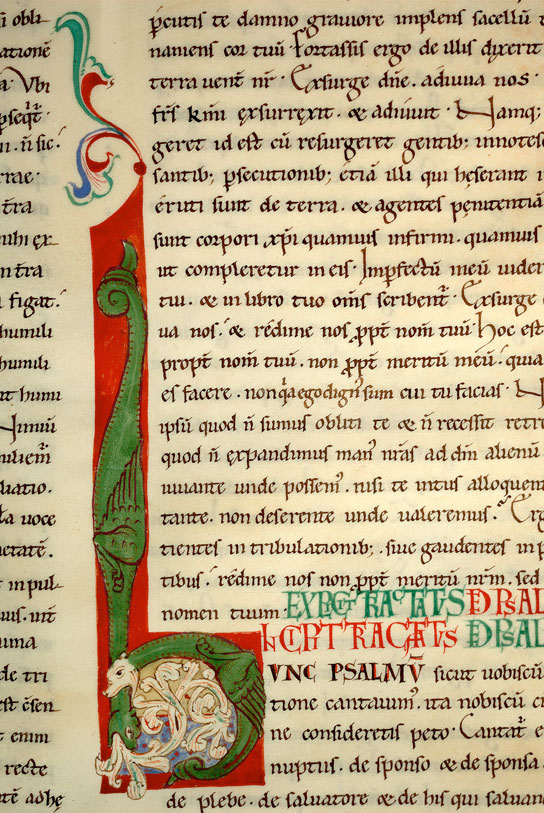 ū obli
ationē
a. Vbi
n. n̄ sic.
rrae.
t̄ra
ihi ex
n t̄ra
figat.
humili
humili
it humi
Nimiū
uatio.
la voce
ietatē.
t in pul
uus. int̄
una
de tri
est c̄sen
t enim
recte
ntē adhę
ꝑcutis te damno grauiore implens sacellū
namens cor tuū. Fortassis ergo de illis dixerit
terra uent̄ nr̄. Exsurge dn̄e. adiuua nos.
exsurrexit. & adiuuit. Namq;
geret id est cū resurgeret gentib; innotes
santib; ꝑsecutionib; etiā illi qui heserant
eruti sunt de terra. & agentes penitentiā
sunt corpori xp̄i quamuis infirmi. quamuis
ut compleretur in eis. Imperfectū meū uider
tui. & in libro tuo om̄s scribent̄. Exsurge
ua nos. & redime nos ꝓpt̄ nom̄ tuū. hoc est
propt̄ nom̄ tuū. non ꝓpt̄ meritū meū. quia
es facere. non qa ego dign' sum cui tu facias.
ipsū quod n̄ sumus obliti te & n̄ recessit retro
quod n̄ expandimus man' nr̄as ad dm̄ alienū
iuuante unde possem'. nisi te intus alloquen
tante. non deserente unde ualeremus. Erg
tientes in tribulationib;. siue gaudentes in
tibus. redime nos non ꝓpt̄ meritū nr̄m. sed
nomen tuum. EXPLICIT TRACTATUS D PSAL
INCIPIT TRACTATUS D PSAL
HUNC PSALMŪ sicut uobiscū
tione cantauim'. ita nobiscū
ne consideretis peto. Cantat̄
nuptiis. de sponso & de sponsa
de plebe. de saluatore & de his qui saluan